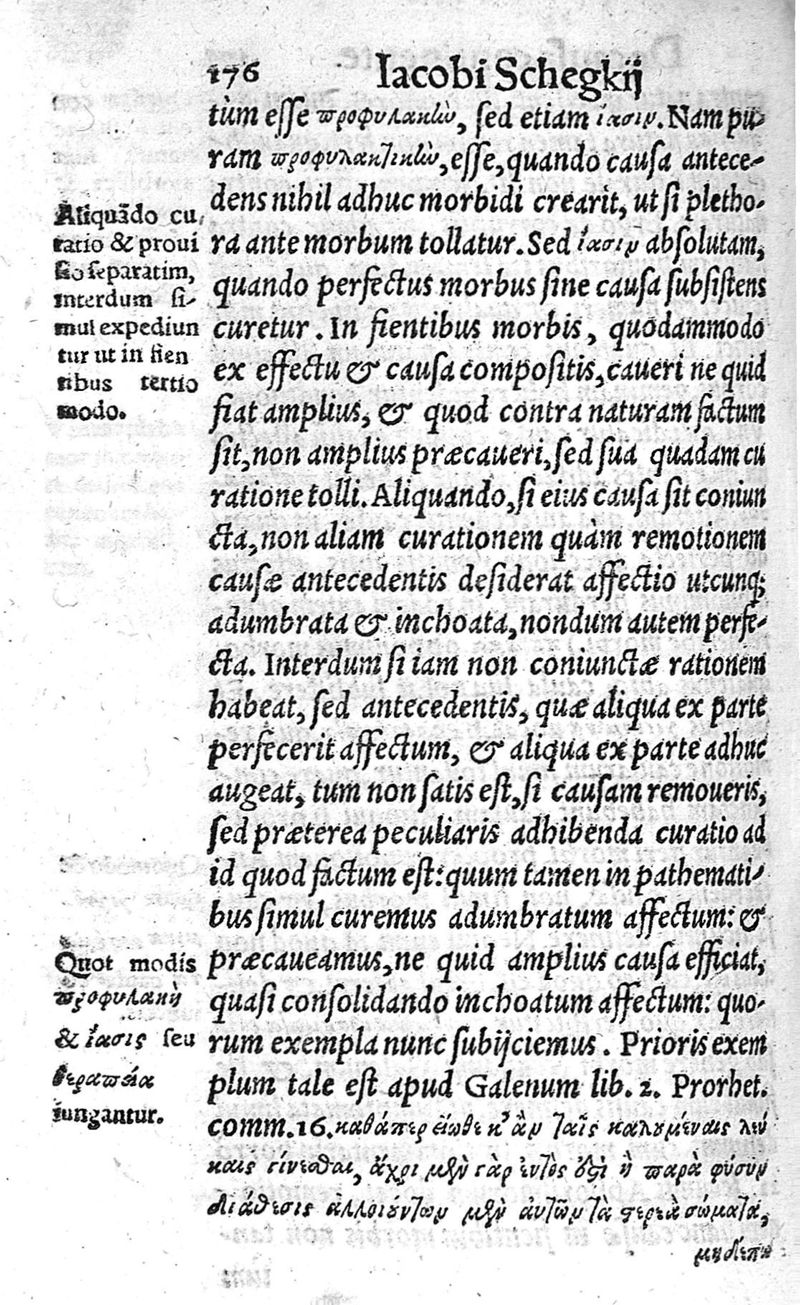 176 Iacobi Schegkij
tùm esse προφυλακὼ, sed etiam ἴασιν. Nam pu-
ram προφυλακτικὼ, esse, quando causa antece-
dens nihil adhuc morbidi crearit, ut si pletho-
ra ante morbum tollatur. Sed ἴασιν absolutam,
quando perfectus morbus sine causa subsistens
curetur. In fientibus morbis, quodammodo
ex effectu & causa compositis, caueri ne quid
fiat amplius, & quod contra naturam factum
sit, non amplius præcaueri, sed sua quadam cu
ratione tolli. Aliquando, si eius causa sit coniun
cta, non aliam curationem quàm remotionem
causæ antecedentis desiderat affectio utcunq;
adumbrata & inchoata, nondum autem perfe-
cta. Interdum si iam non coniunctæ rationem
habeat, sed antecedentis, quæ aliqua ex parte
perfecerit affectum, & aliqua ex parte adhuc
augeat, tum non satis est, si causam remoueris,
sed præterea peculiaris adhibenda curatio ad
id quod factum est: quum tamen in pathemati-
bus simul curemus adumbratum affectum: &
præcaueamus, ne quid amplius causa efficiat,
quasi consolidando inchoatum affectum: quo-
rum exempla nunc subijciemus. Prioris exem
plum tale est apud Galenum lib. 2. Prorhet.
comm. 16. καθάπερ εἴωθε κᾀν ταῖς καλουμέναις λεύ
καις γίνεσθαι, ἄχρι μὲν γὰρ ἐντός ἐστι ἡ παρὰ φύσιν
διάθεσις ἀλλοιούντων μὲν αὐτῶν τὰ στερεὰ σώματα,
μηδέπω
Aliquãdo cu
ratio & proui
sio separatim,
interdum si-
mul expediun
tur ut in fien
tibus tertio
modo.
Quot modis
προφυλακὴ
& ἴασις seu
θεραπεία
iungantur.